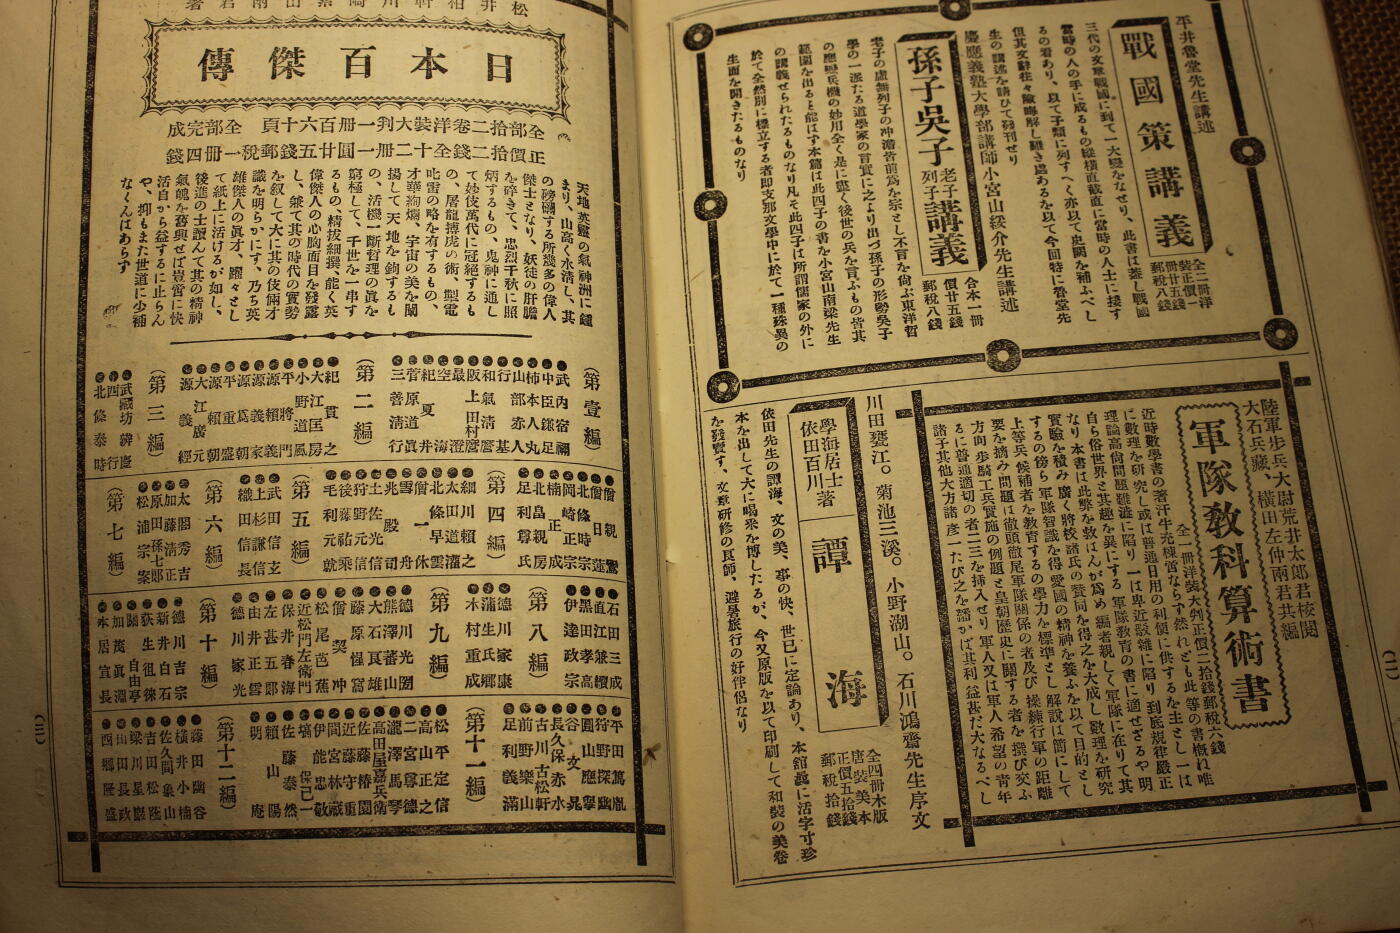 平井魯堂先生講述
戰國策講義
全二冊洋
裝正價一
冊廿五錢
郵稅八錢
三代の文章戰國に到て一大變をなせり、此書は蓋し戰國
當時の人の手に成るもの縱橫直截直に當時の人士に接す
るの看あり、以て子類に列すへく亦以て史闕を補ふべし
但其文辭往々險晦解し難き處あるを以て今回特に魯堂先
生の講述を請ひて發刊せり
慶應義塾大學部講師小宮山綏介先生講述
孫子吳子
老子
列子
講義
合本一冊
價廿五錢
郵稅八錢
老子の虛無列子の冲澹皆前爲を宗とし不言を尙ぶ東洋哲
學の一派たる道學家の言實に之より出づ孫子の形勢吳子
の應變兵機の妙用全く是に盡く後世の兵を言ふもの皆其
範圍を出ると能はず本篇は此四子の書を小宮山南梁先生
の講義せられたるものなり凡そ此四子は所謂儒家の外に
於て全然別に標立する者即支那文學中に於て一種殊異の
生面を開きたるものなり
陸軍步兵大尉荒井太郎君校閱
大石兵藏、橫田左仲兩君共編
軍隊敎科算術書
全一冊洋裝大判正價二拾錢郵稅六錢
近時數學書の著汗牛充棟啻ならず然れども此等の書槪ね唯
に數理を硏究し或は普通日用の利便に供するを主とし一は
理論高尙問題難澁に陷り一は卑近設雜に陷り到底規律嚴正
自ら俗世界と其趣を異にする軍隊敎育の書に適せざるや明
なり本書は此弊を救はんが爲め編者親しく軍隊に在りて其
實驗を積み廣く將校諸氏の贊同を得之を大成し數理を硏究
するの傍ら軍隊智識を得愛國の精神を養ふを以て目的とし
上等兵、候補者を敎育するの學力を標準とし解說は簡にして
要を摘み問題は徹頭徹尾軍隊關係の者及び操練行軍の距離
方向步騎工兵實施の例題と皇朝歷史に關する者を撰び交ふ
るに普通適切の者二三を挿入せり軍人又は軍人希望の靑年
諸子其他大方諸彥一たび之を繙かば其利益甚だ大なるべし
川田甕江。菊池三溪。小野湖山。石川鴻齋先生序文
學海居士
依田百川著
譚海
全四冊木版
唐裝美本
正價五拾錢
郵稅拾錢
依田先生の譚海、文の美、事の快、世已に定論あり、本舘曩に活字寸珍
本を出して大に喝采を博したるが、今又原版を以て印刷して和裝の美卷
を發賣す、文章硏修の良師、避暑旅行の好伴侶なり
(二)
日本百傑傳
全部拾二卷洋裝大判一冊百六十頁全部完成
正價拾二錢全十二冊一圓廿五錢郵稅一冊四錢
天地英靈の氣神洲に鍾
まり、山高く水淸し、其
の磅礴する所幾多の偉人
傑士となり、妖徒の肝膽
を碎きて、忠烈千秋に照
炳するもの、鬼神に通し
て妙伎萬代に冠絕するも
の、屠龍搏虎の術、掣電
叱雷の略を有するもの、
才華絢爛、宇宙の美を闡
揚して天地を鉤するも
の、活機一斷哲理の眞を
窮極して、千世を一串す
るもの、精拔細撰、能く英
偉傑人の心胸面目を發露
し、兼て其の時代の實勢
を叙して大に其の伎倆才
識を明らかにす、乃ち英
雄傑人の眞才、躍々とし
て紙上に活けるが如し、
後進の士讀んて其の精神
氣魄を舊與せば豈啻に快
活自から益するに止らん
や、抑もまた世道に少補
なくんばあらず
(第壹編)
●武內宿禰
●中臣鎌足
●柿本人丸
●山部赤人
●行基
●和氣淸麿
●阪上田村麿
●最澄
●空海
●紀夏井
●菅原道眞
●三善淸行
(第二編)
●紀貫之
●大江匡房
●小野道風
●平將門
●源賴義
●源義家
●源爲朝
●源賴朝
●平重盛
●大江廣元
●源義經
(第三編)
●武藏坊辨慶
●西行
●北條泰時
●親鸞
●僧日蓮
●北條時宗
●岡崎正宗
●楠正成
●北畠親房
●足利尊氏
(第四編)
●細川賴之
●太田道灌
●北條早雲
●僧一休
●雪舟
●兆殿司
●土佐光信
●狩野元信
●後藤祐乘
●毛利元就
(第五編)
●武田信玄
●上杉謙信
●織田信長
(第六編)
●太閤秀吉
●加藤淸正
●原田孫七郎
●松浦宗案
(第七編)
●石田三成
●直江兼續
●黑田孝高
●伊達政宗
(第八編)
●德川家康
●蒲生氏鄕
●木村重成
(第九編)
●德川光圀
●熊澤蕃山
●大石良雄
●藤原惺窩
●僧契冲
●松尾芭蕉
●近松門左衛門
●保井春海
●左甚五郎
●由井正雪
●德川家光
(第十編)
●德川吉宗
●新井白石
●荻生徂徠
●關自由亭
●加茂眞淵
●本居宣長
●平田篤胤
●狩野探幽
●圓山應擧
●谷文晁
●長久保赤水
●古川古松軒
●前野樂山
●足利義滿
(第十一編)
●松平定信
●高山正之
●二宮尊德
●瀧澤馬琴
●高田屋嘉兵衛
●佐藤椿園
●近藤守重
●間宮林藏
●伊能忠敬
●塙保己一
●佐藤泰然
●賴山陽
●明庵
(第十二編)
●藤田幽谷
●橫井小楠
●佐久間象山
●吉田松陰
●梁川星巖
●山田長政
●西鄕隆盛
(三)